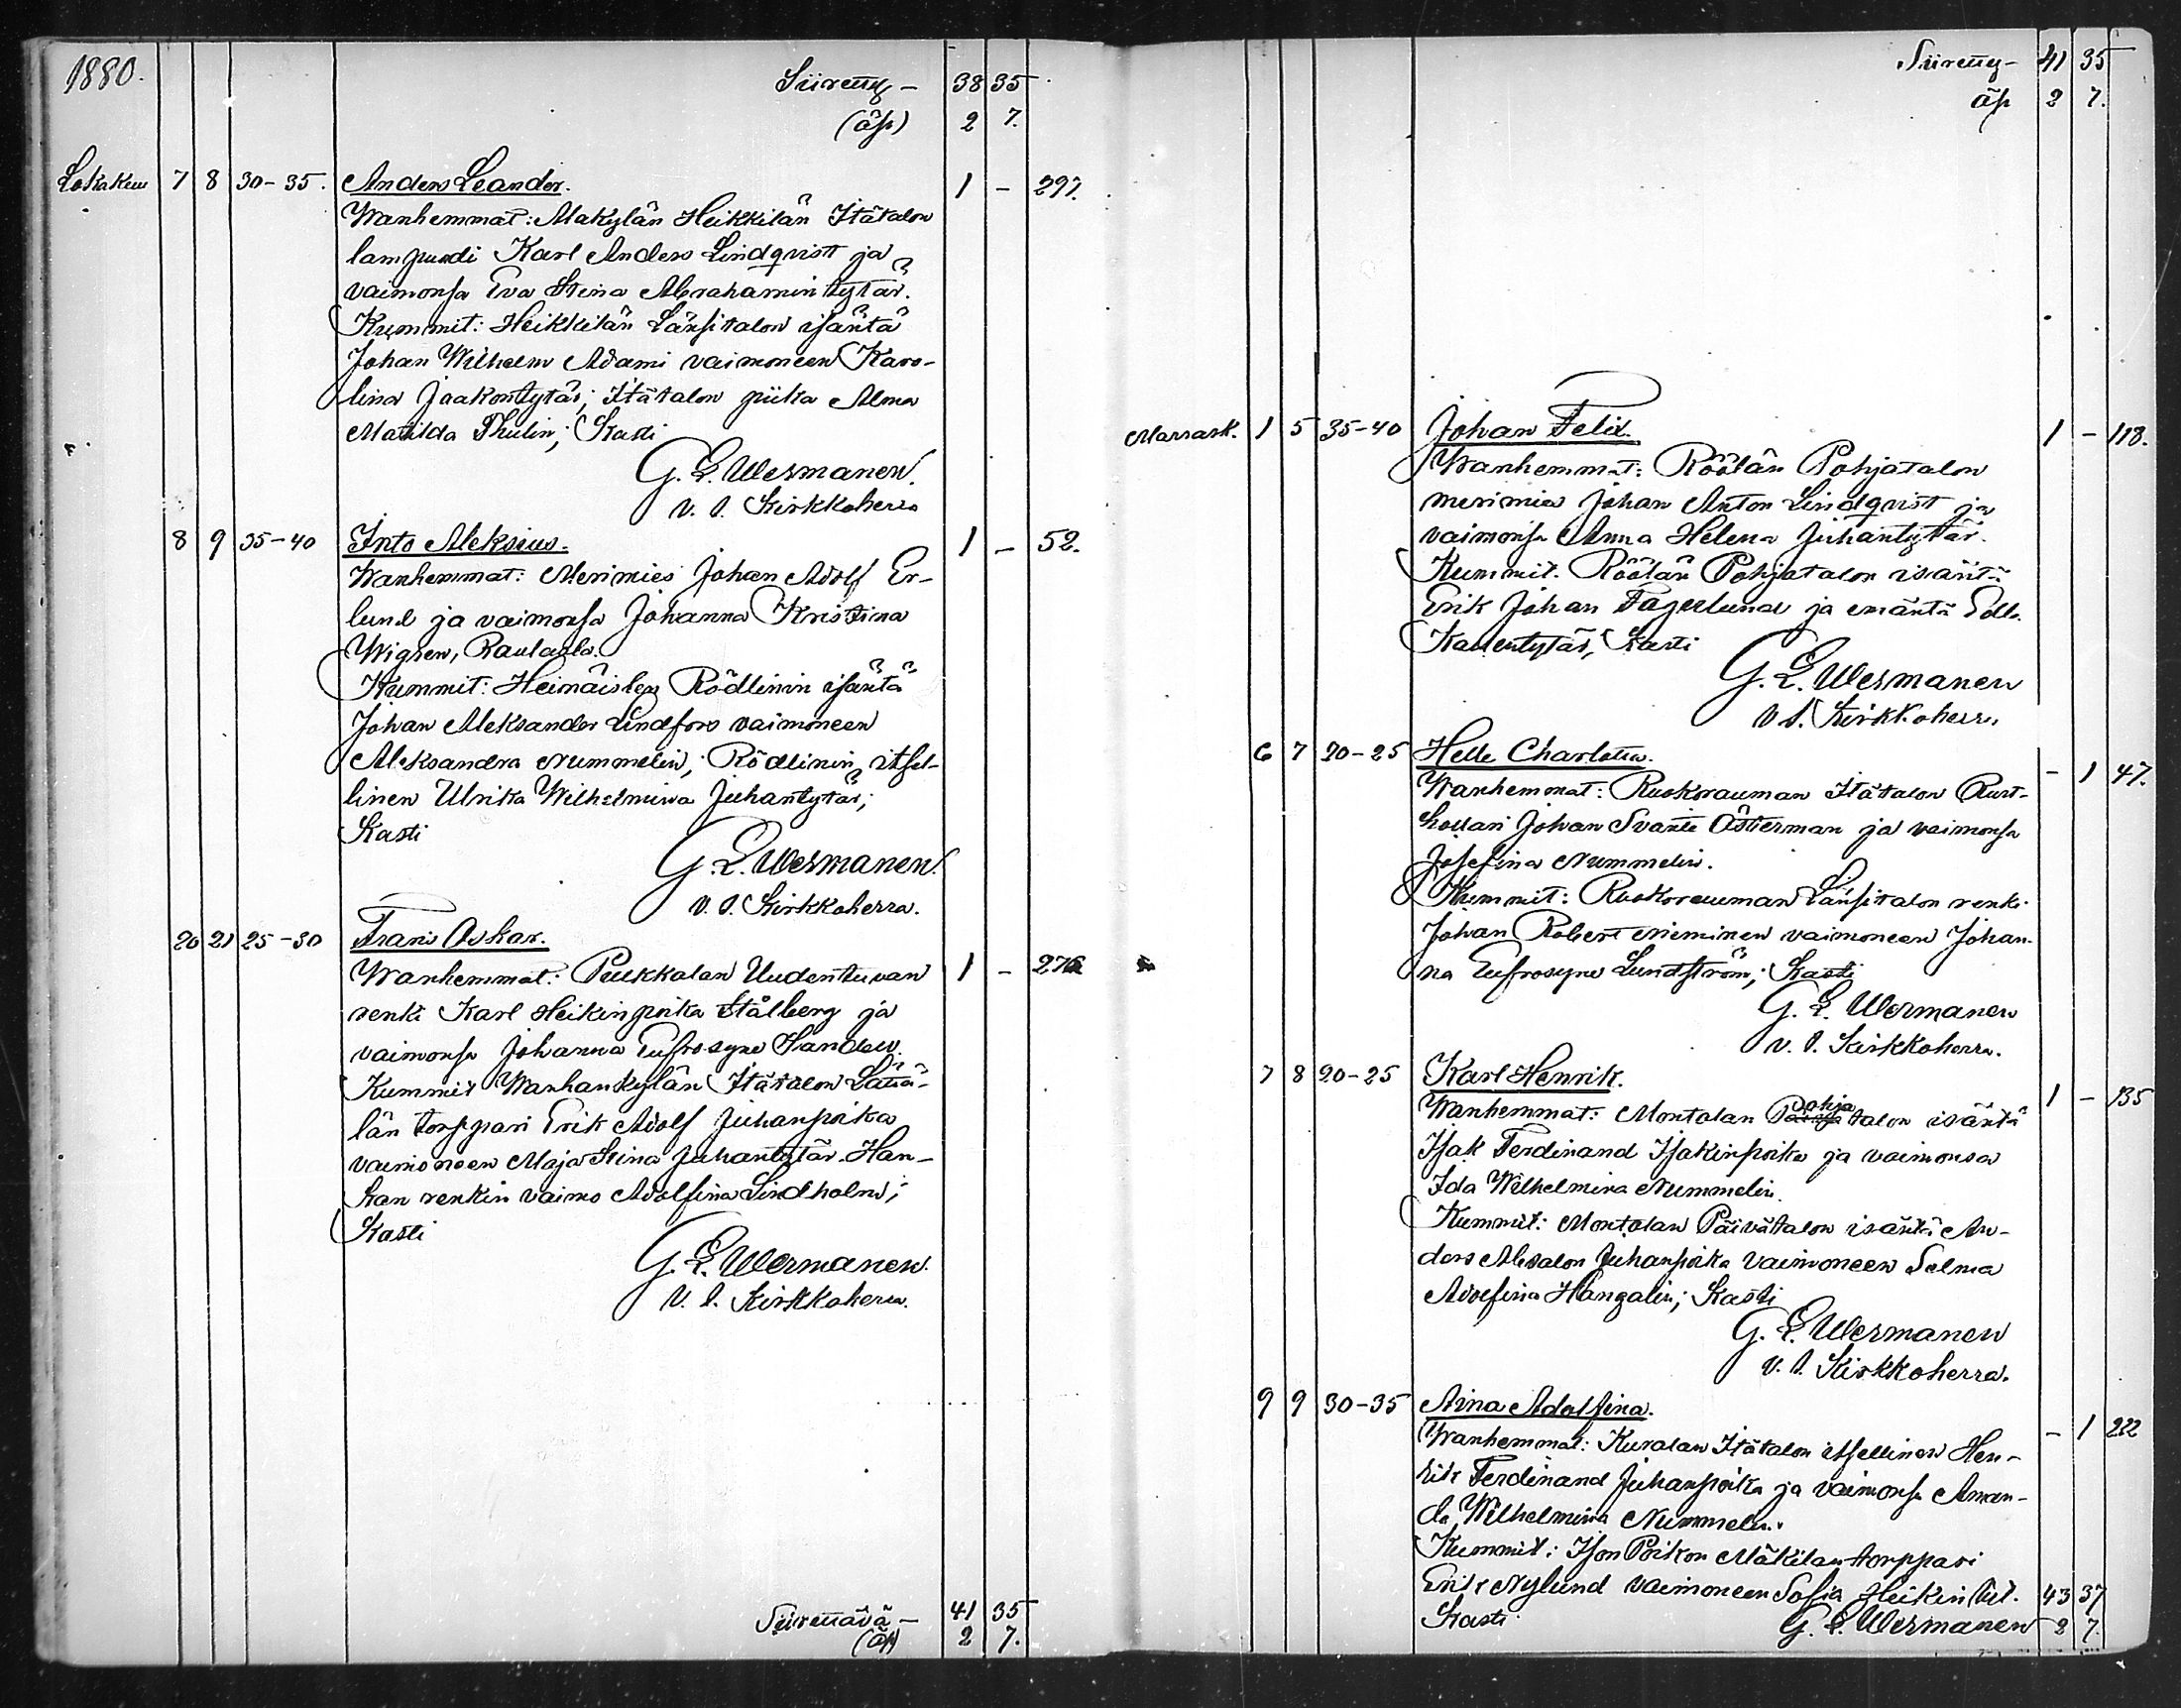 1880.
Siirretty – 38 35
(äp) 2 7.
Lokakuu 7 8 30-35. Anders Leander. 1 – 297.
Wanhemmat: Alakylän Heikkilän Itätalon
lampuodi Karl Anders Lindqvist ja
vaimonsa Eva Stina Abrahamintytär.
Kummit: Heikkilän Länsitalon isäntä
Johan Wilhelm Adami vaimoneen Karo-
lina Jaakontytär; Itätalon piika Alma
Matilda Thulin; Kasti
G. E. Wermanen.
v. t. Kirkkoherra
8 9 35-40 Into Aleksius. 1 – 52.
Wanhemmat: Merimies Johan Adolf Er-
lund ja vaimonsa Johanna Kristina
Wigren,
Kummit: Heinäisten Rödlinin isäntä
Johan Aleksander Lindfors vaimoneen
Aleksandra Nummelin; Rödlinin itsel-
linen Ulrika Wilhelmina Juhantytär;
Kasti
G. E. Wermanen.
v. t. Kirkkoherra.
20 21 25-30 Frans Oskar.
Wanhemmat: Pukkalan Uudentuvan 1 – 276
renki Karl Heikinpoika Stålberg ja
vaimonsa Johanna Eufrosyne Sandell.
Kummit Wanhankylän Itätalon
län torppari Erik Adolf Juhanpoika
vaimoneen Maja Stina Juhantytär. Han-
kan renkin vaimo Adolfina Lindholm;
Kasti
G. E. Wermanen.
v. t. Kirkkoherra.
Siirrettävä – 41 35
(äp) 2 7.
Siirretty – 41 35
äp 2 7.
Marrask. 1 5 35-40 Johan Felix. 1 – 118.
Wanhemmat: Röölän Pohjatalon
merimies Johan Anton Lindqvist ja
vaimonsa Anna Helena Juhantytär.
Kummit. Röölän Pohjatalon isäntä
Erik Johan Fagerlund ja emäntä
Kallentytär, Kasti
G. E. Wermanen
v. t. Kirkkoherra.
6 7 20-25 Helle Charlotta. – 1 47.
Wanhemmat: Ruokorauman Itätalon Ruot-
Johan Svante Österman ja vaimonsa
Josefina Nummelin.
Kummit: Ruokorauman Länsitalon renki
Johan Robert Nieminen vaimoneen Johan-
na Eufrosyne Lundström; Kasti
G. E. Wermanen
v. t. Kirkkoherra.
7 8 20-25 Karl Henrik. 1 – 135
Wanhemmat: Montolan Pohjatalon isäntä
Isak Ferdinand Isakinpoika ja vaimonsa
Ida Wilhelmina Nummelin.
Kummit: Montolan Päivätalon isäntä An-
ders Absalon Juhanpoika vaimoneen Selma
Adolfina Hangelin; Kasti
G. E. Wermanen
v. t. Kirkkoherra.
9 9 30-35 Aina Adolfina. – 1 222
Wanhemmat: Kuralan Itätalon itsellinen Hen-
rik Ferdinand Juhanpoika ja vaimonsa Aman-
da Wilhelmina Nummelin.
Kummit: Ison Poikon Mäkilän torppari
Erik Nylund vaimoneen Sofia Heikintyt. 43 37
Kasti G. E. Wermanen 2 7.